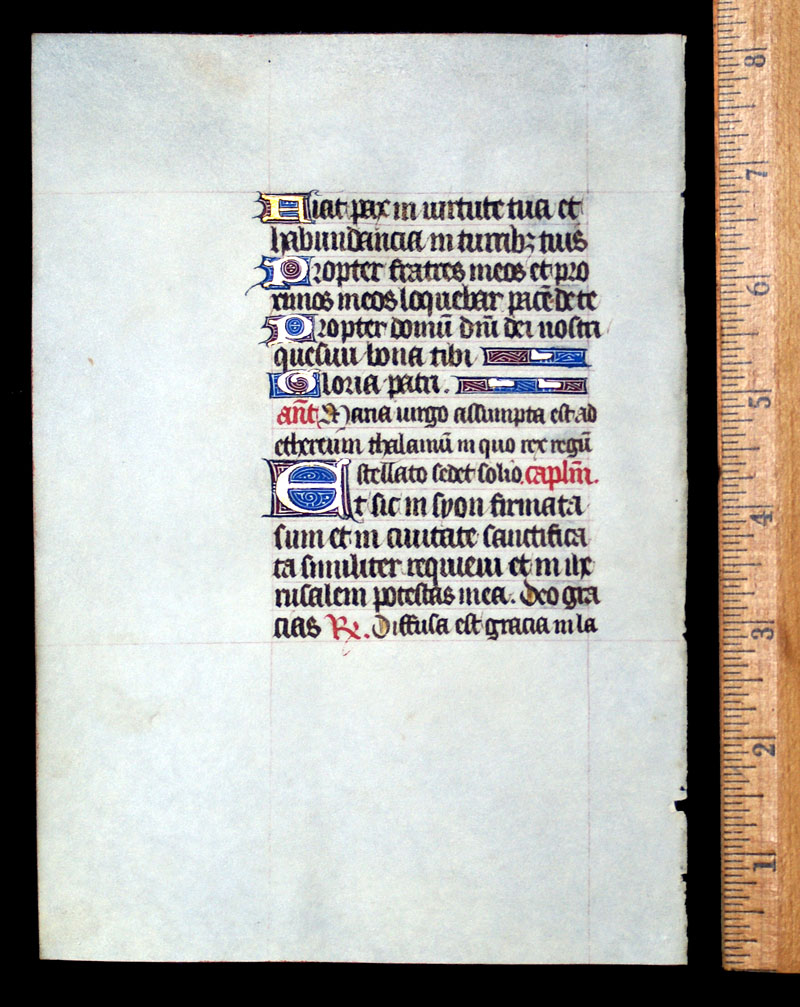 Fiat pax in uirtute tua et
habundancia in turribꝫ tuis
Propter fratres meos et pro
ximos meos loquebar pacē de te
Propter domū dn̄i dei nostri
quesiui bona tibi
Gloria patri.
an̄t. Maria uirgo assumpta est ad
ethereum thalamū in quo rex regū
stellato sedet solio. caplm̄.
Et sic in syon firmata
sum et in ciuitate sanctifica
ta similiter requieui et in ihe
rusalem potestas mea. Deo gra
cias Rx. Diffusa est gracia in la
8
7
6
5
4
3
2
1